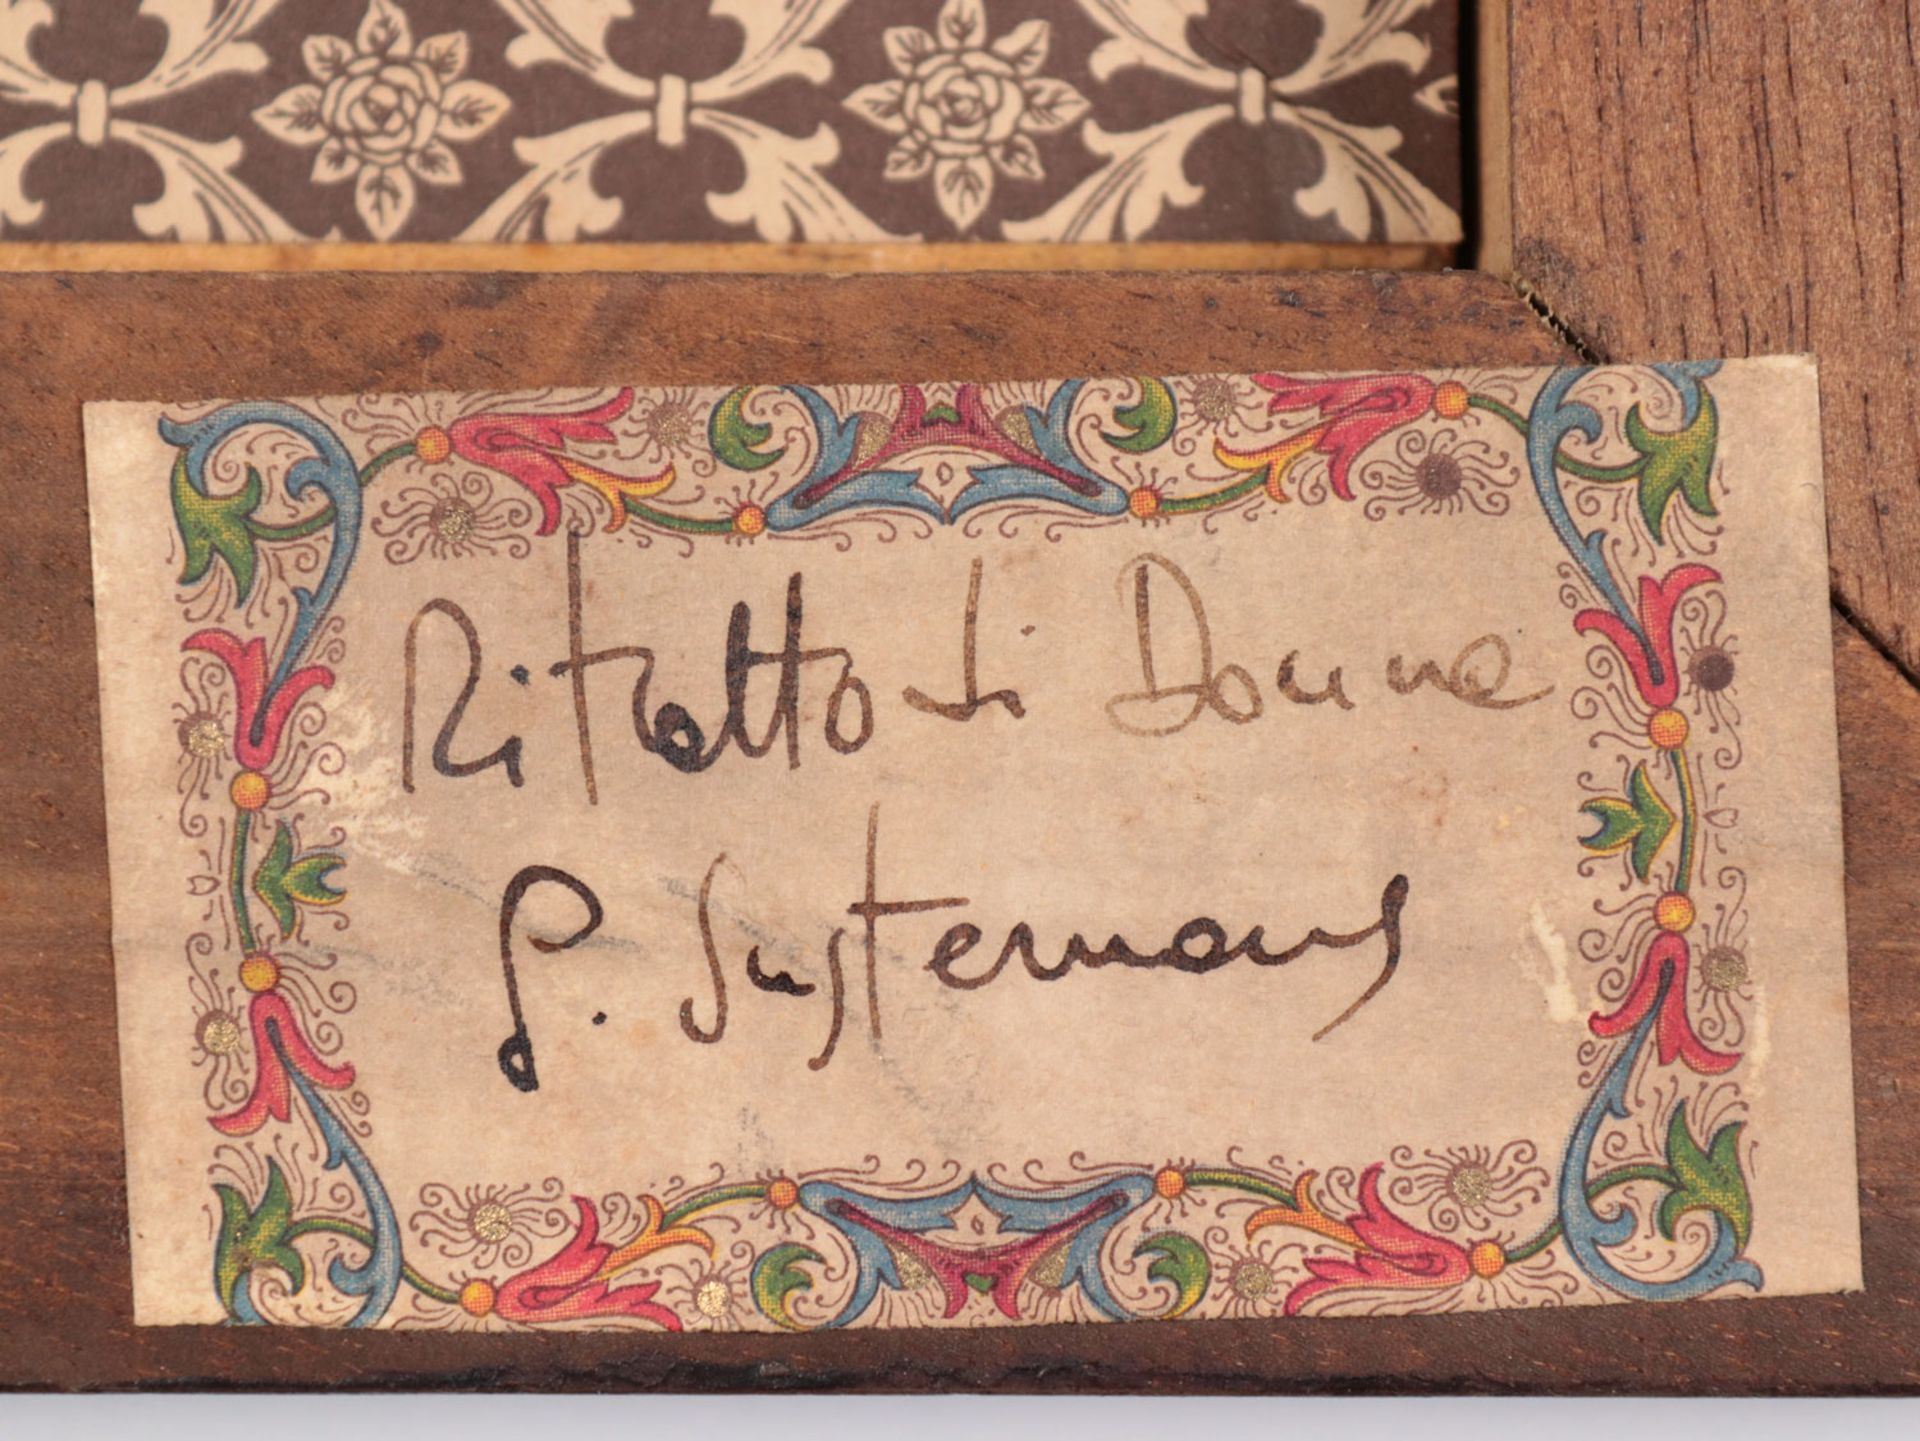 Ritratto di Donna
G. Sustermans